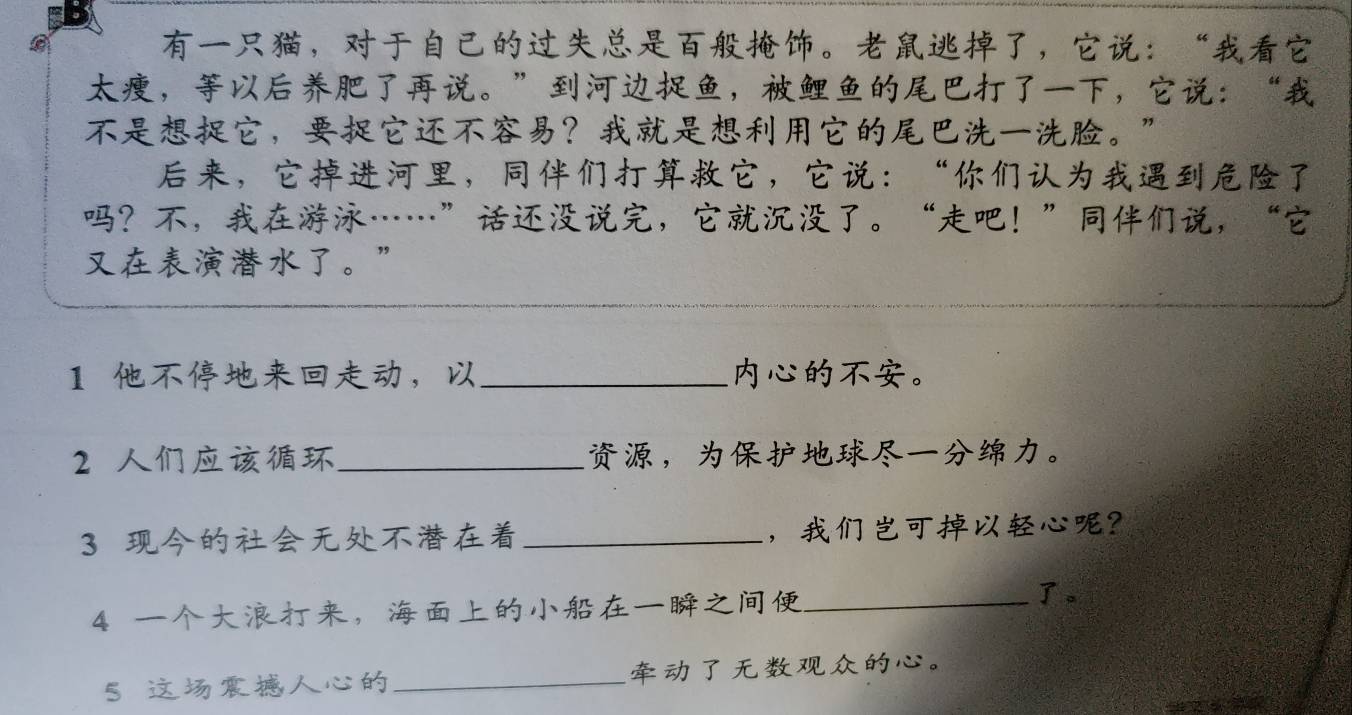 B
有一只猫，对于自己的过失总是百般掩饰。老鼠逃掉了，它说：“我看它
太瘦，等以后养肥了再说。”到河边捉鱼，被鲤鱼的尾巴打了一下，它说：“我
不是想捉它，要捉它还不容易？我就是想利用它的尾巴洗一洗脸。”
后来，它掉进河里，同伴们打算救它，它说：“你们认为我遇到危险了
吗？不，我在游泳……”话还没说完，它就沉没了。“走吧！”同伴们说，“它
又在表演潜水了。”
1 他不停地来回走动，以____________内心的不安。
2 人们应该循环____________资源，为保护地球尽一分绵力。
3 现今的社会无处不潜在着____________，我们岂可掉以轻心呢？
4 一个大浪打来，海面上的小船在一瞬之间便____________了。
5 这场震撼人心的____________牵动了无数观众的心。